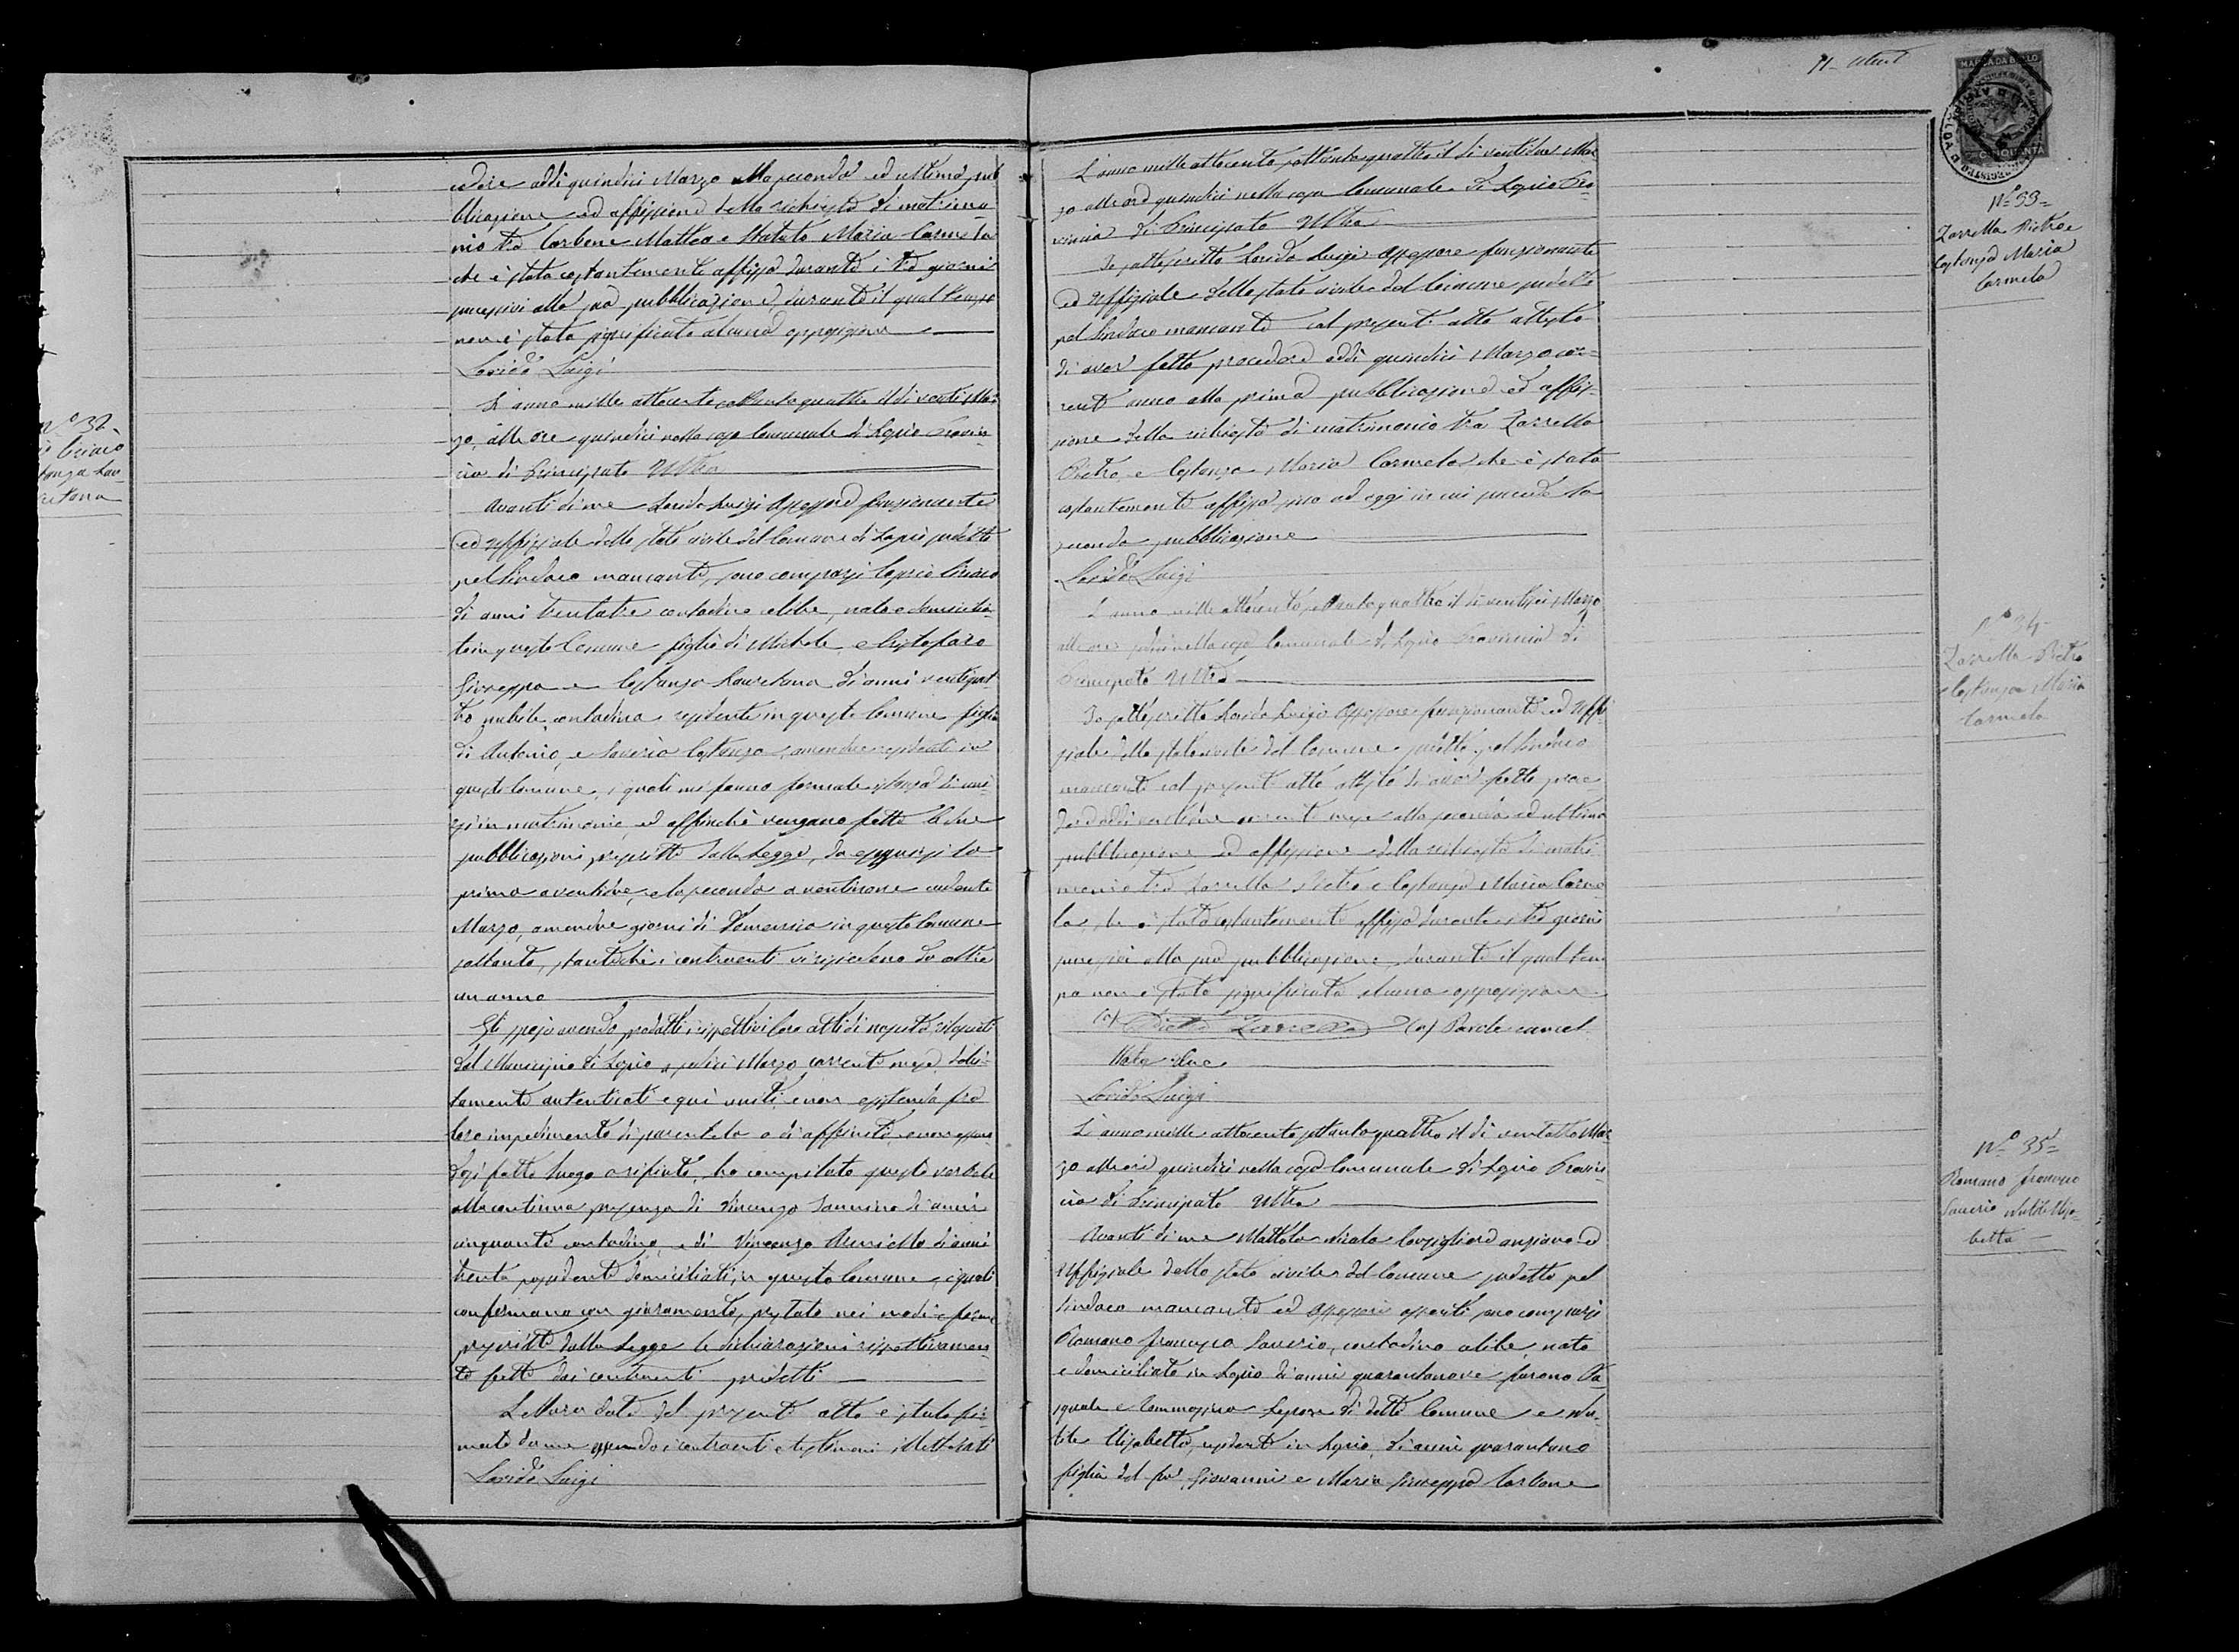 cedere addì quindici Marzo alla seconda ed ultima pub
blicazione ed affissione della richiesta di matrimo
nio tra Carbone Matteo e Statuto Maria Carmela
che è stata costantemente affissa durante i tre giorni
successivi alla sua pubblicazione, durante il qual tempo
non è stata significata alcuna opposizione
Lorido Luigi
N.º 32
Ciriaco
L'anno mille ottocento settantaquattro il dì venti Mar
zo, alle ore quindici nella casa Comunale di Lapio Provin
cia di Principato Ultra
Avanti di me Lorido Luigi Assessore funzionante
ed Uffiziale dello stato civile del Comune di Lapio sudetto
pel Sindaco mancante, sono comparsi Ciriaco
di anni trentatre contadino celibe, nato e domicilia
to in questo Comune figlio di Michele, e Cristofaro
Giuseppa e Costanza Lauretana di anni ventiquat
tro nubile, contadina residente in questo Comune figlia
di Antonio, e Saveria Costanza, amendue residenti in
questo Comune, i quali mi fanno formale istanza di unir
si in matrimonio, ed affinchè vengano fatte le due
pubblicazioni prescritte dalla Legge, da eseguirsi la
prima a ventidue, e la seconda a ventinove andante
Marzo, amendue giorni di Domenica in questo Comune
soltanto, stantechè i contraenti vi risiedono da oltre
un anno
Gli sposi avendo prodotti i rispettivi loro atti di nascita rilasciati
dal Municipio di Lapio a sedici Marzo corrente mese, debi
tamente autenticati e qui uniti, e non esistendo fra
loro impedimento di parentela o di affinità, e non essen
dosi fatto luogo a rifiuto, ho compilato questo verbale
alla continua presenza di Vincenzo Iannino di anni
cinquanta contadino, e di Vincenzo di anni
trenta possidente domiciliati in questo Comune, i quali
confermano con giuramento, prestato nei modi e forme
prescritte dalla Legge le dichiarazioni rispettivamen
te fatte dai contraenti predetti
Lettura data del presente atto è stato fir
mato da me essendo i contraenti e testimoni illetterati
Lorido Luigi
L'anno mille ottocento settantaquattro il dì ventidue Mar
zo alle ore quindici nella casa Comunale di Lapio Pro
vincia di Principato Ultra
Io sottoscritto Lorido Luigi Assessore funzionante
ed Uffiziale dello stato civile del Comune sudetto
pel Sindaco mancante col presente atto attesto
di aver fatto procedere addì quindici Marzo cor
rente anno alla prima pubblicazione ed affis
sione della richiesta di matrimonio tra Zarrella
Pietro e Costanza Maria Carmela che è stata
costantemente affissa sino ad oggi in cui succede la
seconda pubblicazione
Lorido Luigi
L'anno mille ottocento settantaquattro il dì ventisei Marzo
alle ore sedici nella casa Comunale di Lapio Provincia di
Principato Ultra
Io sottoscritto Lorido Luigi Assessore funzionante ed Uffi
ziale dello stato civile del Comune sudetto pel Sindaco
mancante col presente atto attesto di aver fatto proce
dere addì ventidue corrente mese alla seconda ed ultima
pubblicazione ed affissione della richiesta di matri
monio tra Zarrella Pietro e Costanza Maria Carme
la che è stata costantemente affissa durante i tre giorni
successivi alla sua pubblicazione, durante il qual tem
po non è stata significata alcuna opposizione
(a) Pietro Zarrella (a) Parole cancel
late due
Lorido Luigi
L'anno mille ottocento settantaquattro il dì ventotto Mar
zo alle ore quindici nella casa Comunale di Lapio Provin
cia di Principato Ultra
Avanti di me Mattola Nicola Consigliere anziano ed
Uffiziale dello stato civile del Comune sudetto pel
Sindaco mancante ed Assessori assenti sono comparsi
Romano Francesco Saverio, contadino celibe, nato
e domiciliato in Lapio di anni quarantanove furono Pa
squale e Tommasina Lepore di detto Comune e
Elisabetta, residente in Lapio, di anni quarantuno
figlia del fu Giovanni e Maria Giuseppa Carbone
MARCA DA BOLLO
CINQUANTA
Nº 33
Zarrella Pietro e
Costanza Maria
Carmela
Nº 34
Zarrella Pietro
e Costanza Maria
Carmela
Nº 35
Romano Francesco
Saverio Elisa
betta